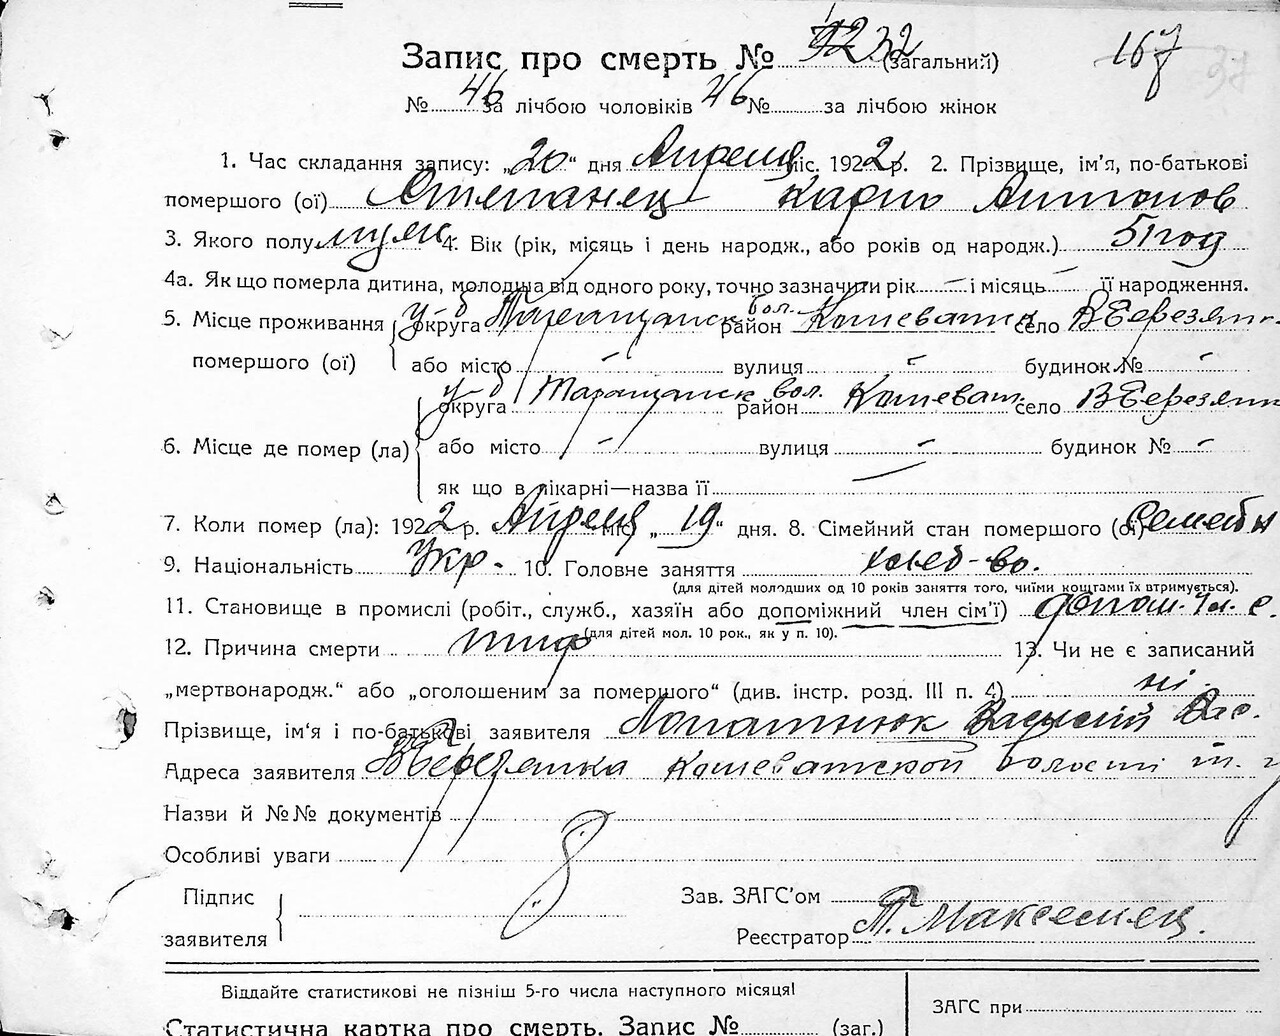 167
37
Запис про смерть № 232 (загальний)
№ 46 за лічбою чоловіків 46 № за лічбою жінок
1. Час складання запису: „20“ дня Апреля міс. 1922 р. 2. Прізвище, ім'я, по-батькові
помершого (ої) Степанец Карп Антонов
3. Якого полу муж. 4. Вік (рік, місяць і день народж., або років од народж.) 51 год
4а. Як що померла дитина, молодша від одного року, точно зазначити рік — і місяць — її народження.
5. Місце проживання у-д округа Таращанск вол. район Кошеватск село ВБерезянк
помершого (ої) або місто - вулиця - будинок № -
у-д округа Таращанск вол. район Кошеват. село ВБерезянк
6. Місце де помер (ла) або місто - вулиця - будинок № -
як що в лікарні—назва її
7. Коли помер (ла): 1922 р. Апреля міс. „19“ дня. 8. Сімейний стан помершого (ої) семейн
9. Національність Укр. 10. Головне заняття хлеб-во.
(для дітей молодших од 10 років заняття того, чиїми коштами їх втримується).
11. Становище в промислі (робіт., служб., хазяїн або допоміжний член сім'ї) допом. чл. с.
(для дітей мол. 10 рок., як у п. 10).
12. Причина смерти тиф 13. Чи не є записаний
„мертвонародж.“ або „оголошеним за помершого“ (див. інстр. розд. III п. 4) ні
Прізвище, ім'я і по-батькові заявителя Лопатнюк Василий Вас.
Адреса заявителя ВБерезянка Кошеватской волости т. у
Назви й №№ документів
Особливі уваги
Підпис заявителя
Зав. ЗАГС'ом
Реєстратор П. Максемец.
Віддайте статистикові не пізніш 5-го числа наступного місяця!
ЗАГС при
Статистична картка про смерть. Запис № (заг.)